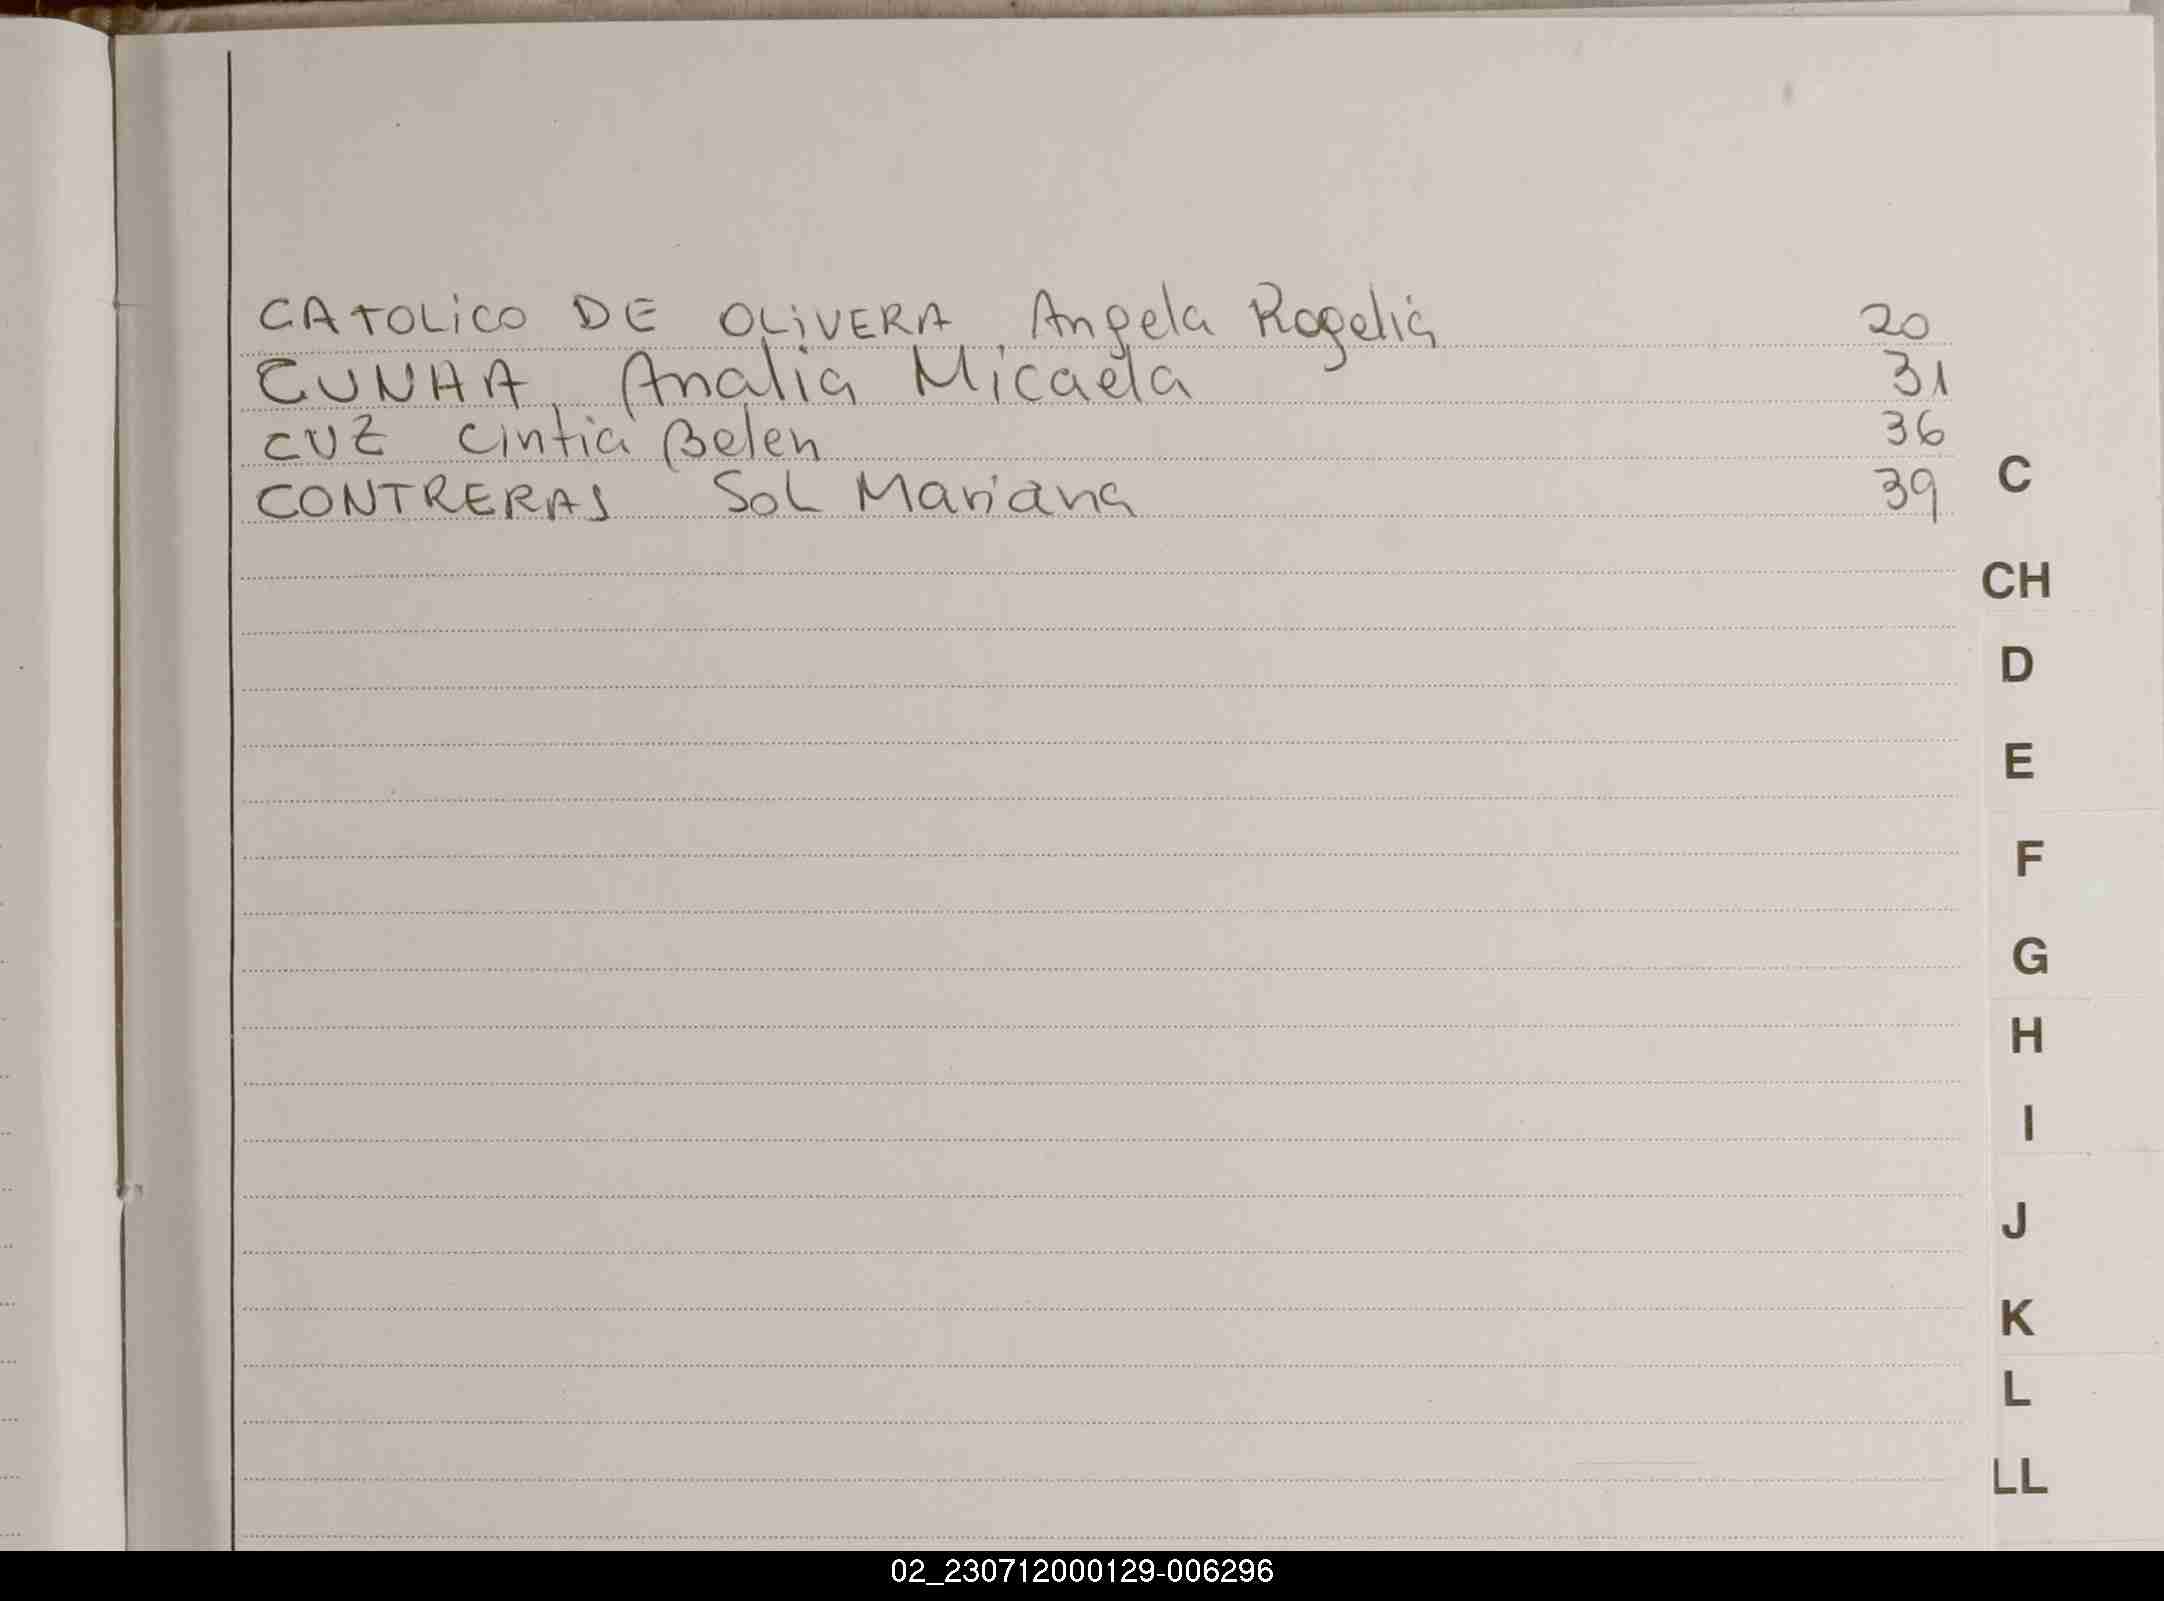 CATOLICO DE OLIVERA, Angela Rogelia 20
CUNHA, Analia Micaela 31
CUZ Cintia Belen 36
CONTRERAS Sol Mariana 39
C
CH
D
E
F
G
H
I
J
K
L
LL
02_230712000129-006296